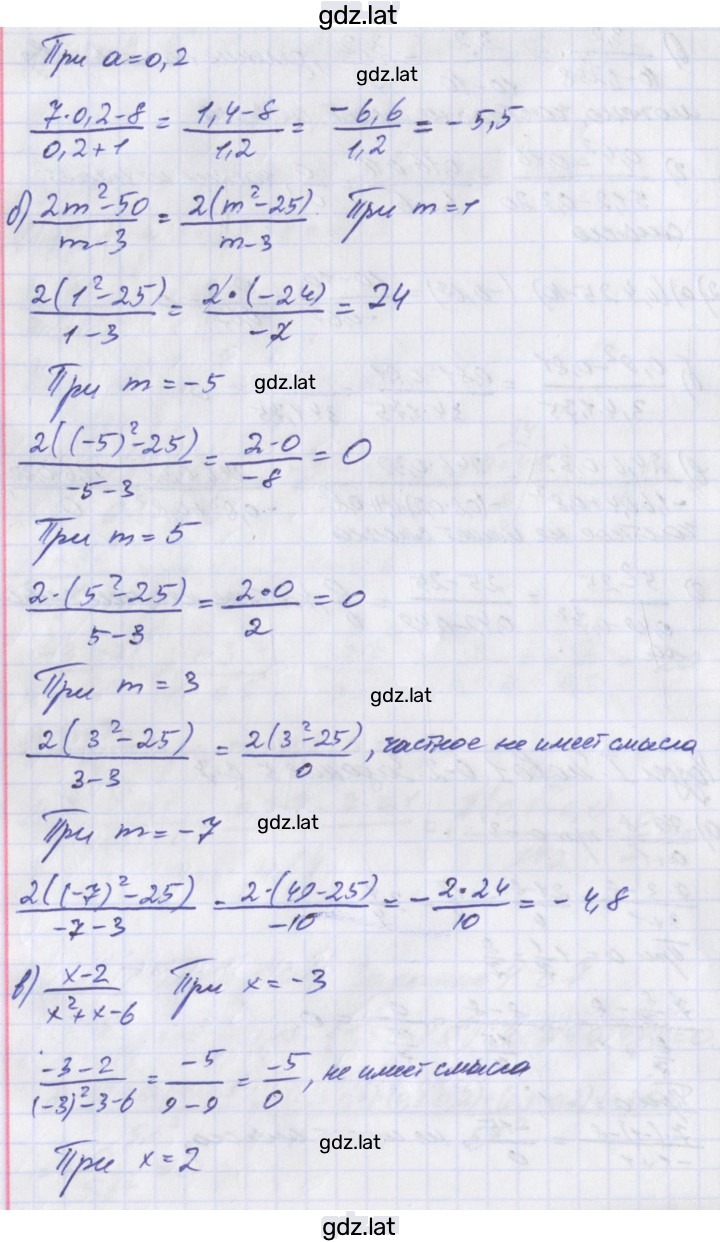 gdz.lat
При a=0,2
gdz.lat
(7·0,2-8)/(0,2+1) = (1,4-8)/1,2 = (-6,6)/1,2 = -5,5
б) (2m²-50)/(m-3) = (2(m²-25))/(m-3) При m=1
(2(1²-25))/(1-3) = (2·(-24))/(-2) = 24
При m=-5 gdz.lat
(2((-5)²-25))/(-5-3) = (2·0)/(-8) = 0
При m=5
(2·(5²-25))/(5-3) = (2·0)/2 = 0
При m=3 gdz.lat
(2(3²-25))/(3-3) = (2(3²-25))/0, частное не имеет смысла
При m=-7 gdz.lat
(2((-7)²-25))/(-7-3) = (2·(49-25))/(-10) = -(2·24)/10 = -4,8
в) (x-2)/(x²+x-6) При x=-3
(-3-2)/((-3)²-3-6) = (-5)/(9-9) = (-5)/0, не имеет смысла
При x=2 gdz.lat
gdz.lat